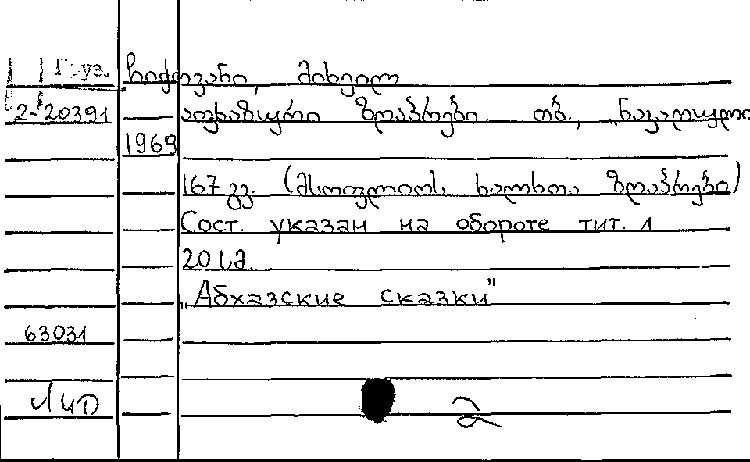 Груз. ჩიქოვანი, მიხეილ
2-20391 აფხაზური ზღაპრები თბ., „ნაკადული
1969
167 გვ. (მსოფლიოს ხალხთა ზღაპრები)
Сост. указан на обороте тит. л
20 სმ
„Абхазские сказки"
63031